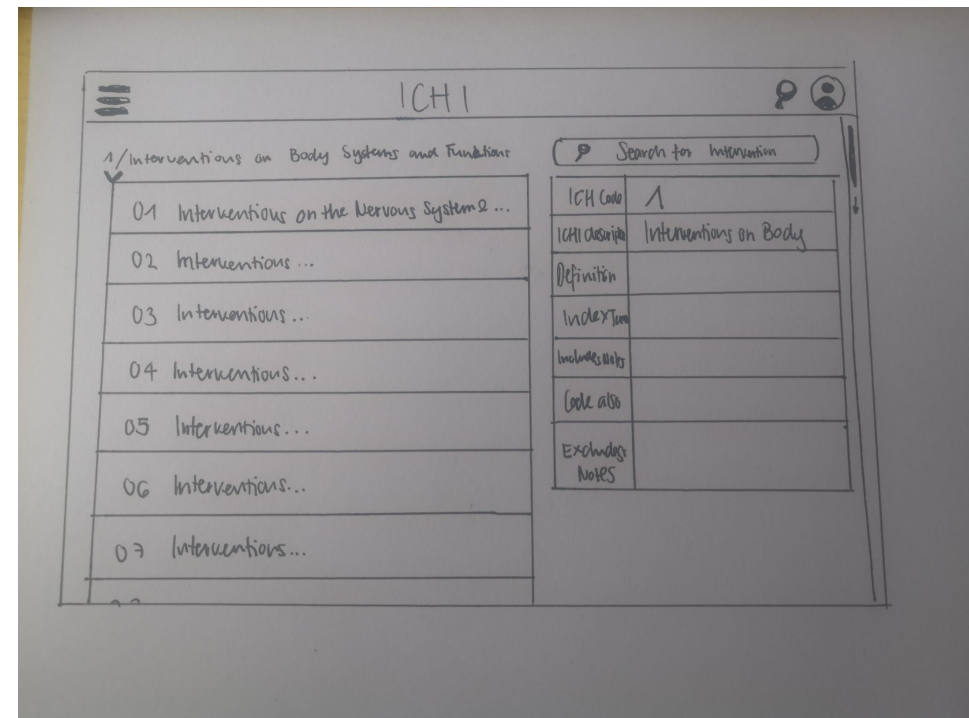 ICHI
1/Interventions on Body Systems and Funktions
01 Interventions on the Nervous Systems ...
02 Interventions ...
03 Interventions ...
04 Interventions...
05 Interventions...
06 Interventions...
07 Interventions...
Search for Intervention
ICH Code 1
ICHI descriptio Interventions on Body
Definition
Index Term
Includes Notes
Code also
Excludes
Notes